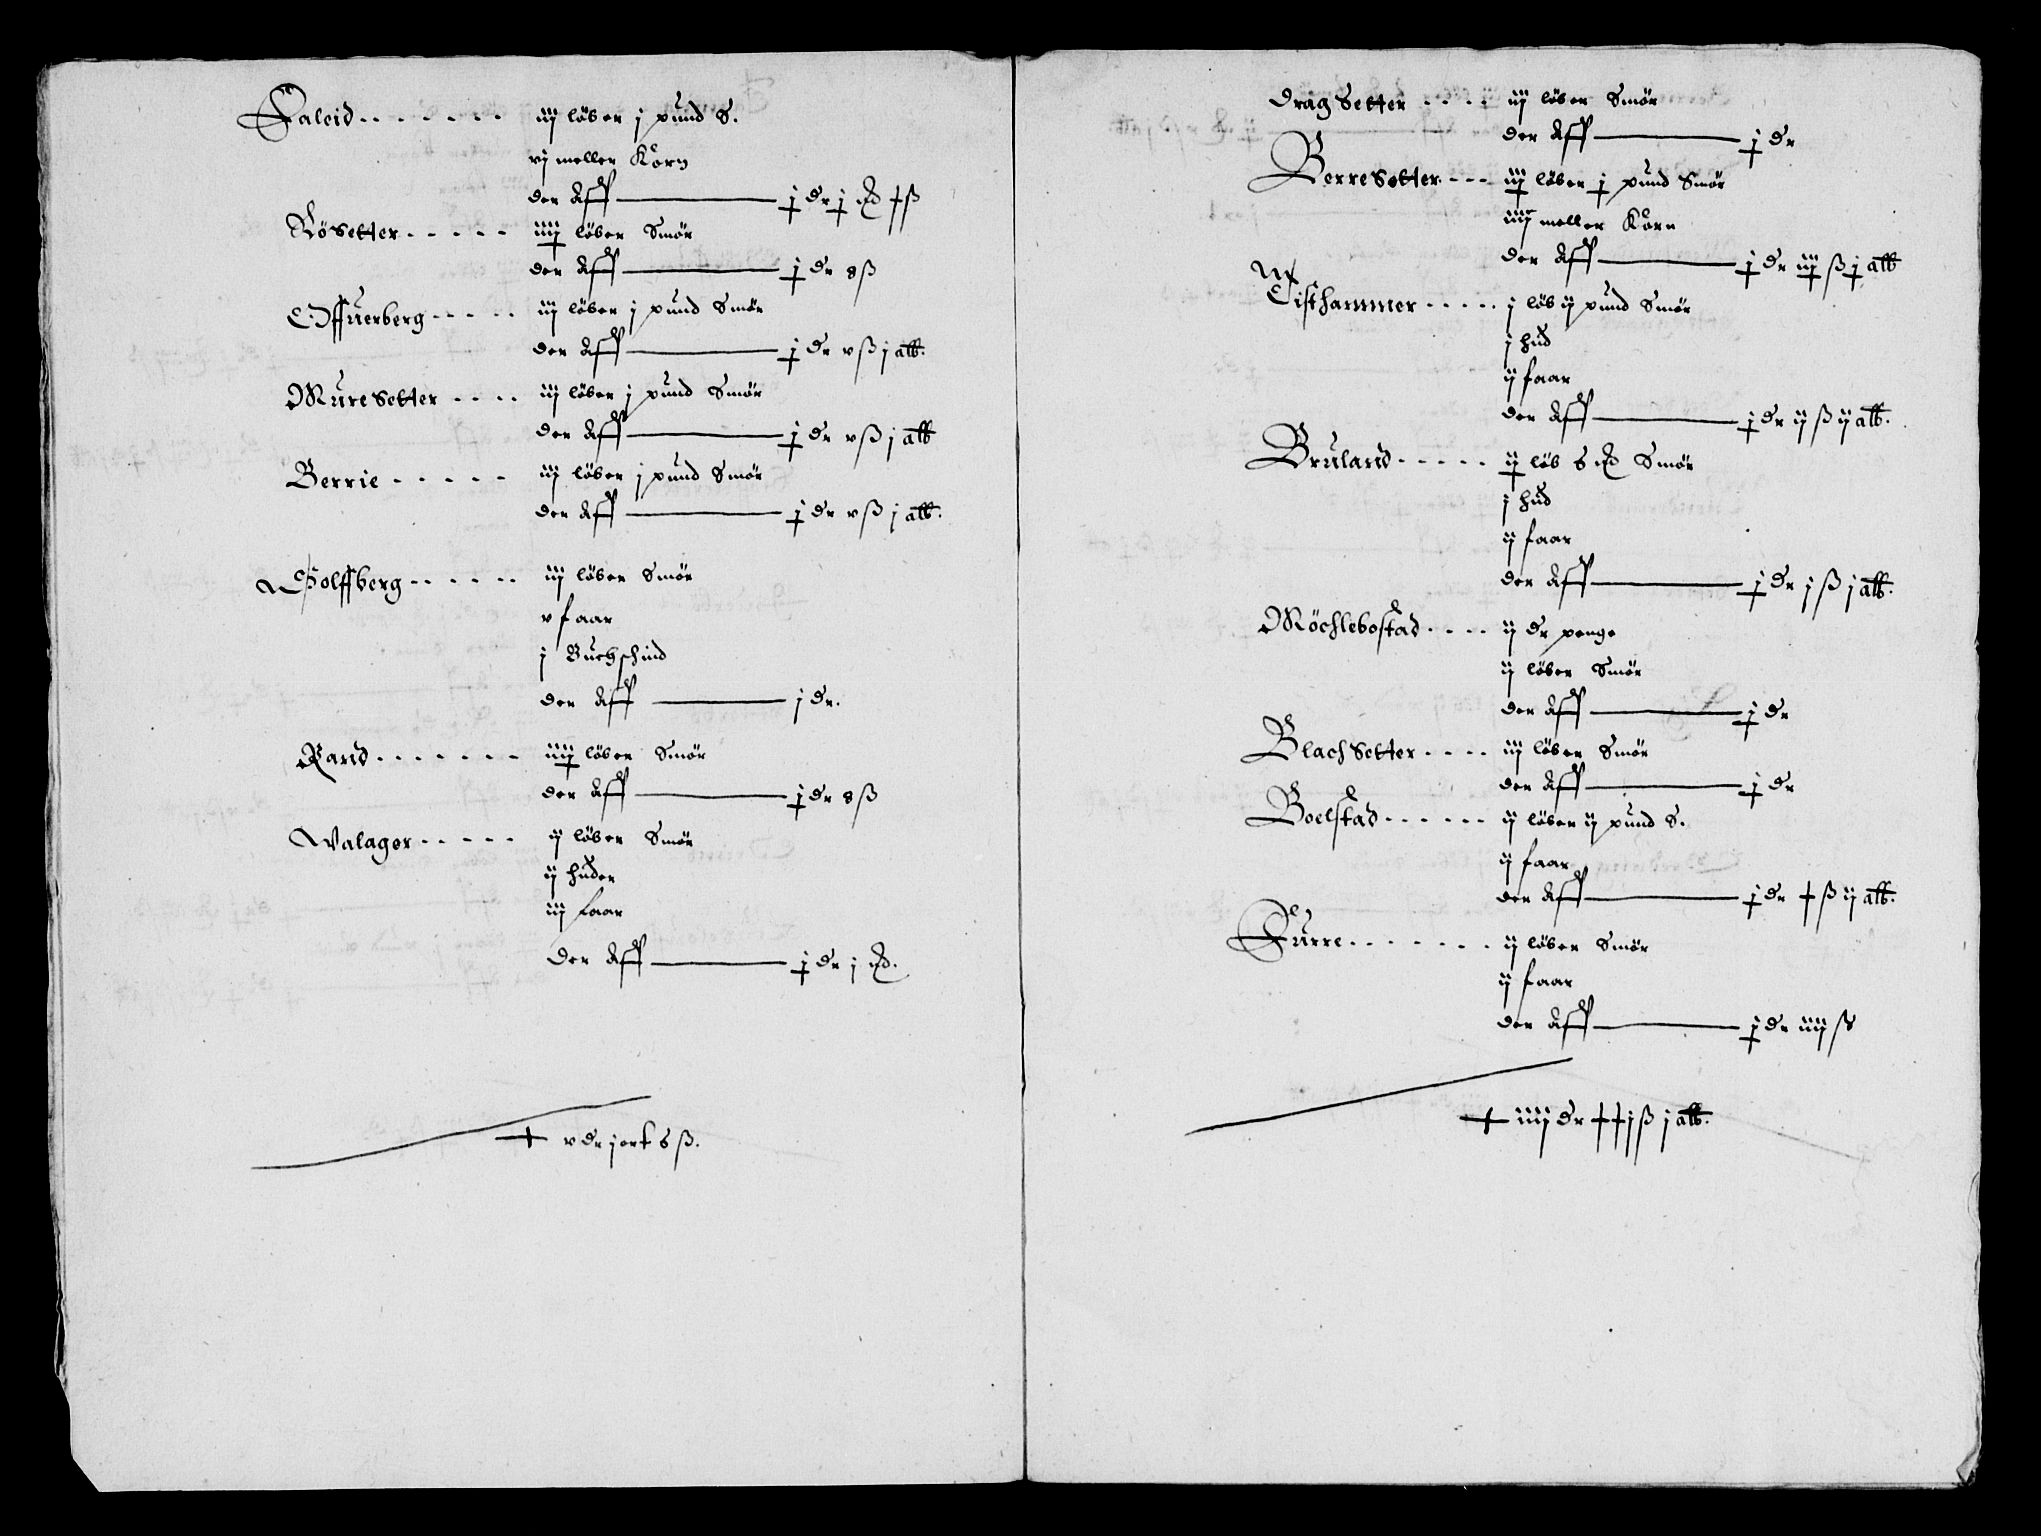 Faleid - - - - - - - iij löber j pund S.
vj meller Korn
der Aff ——— j dr j ort ß
Rösetter - - - - - iiij löber Smör
der Aff ——— j dr 8 ß
Offuerberg - - - - - iij löber j pund Smör
der Aff ——— j dr v ß j alb.
Muresetter - - - - iij löber j pund Smör
der Aff ——— j dr v ß j alb
Berrie - - - - - iij löber j pund Smör
der Aff ——— j dr v ß j alb.
Holffberg - - - - - - iij löber Smör
v faar
j Buchschind
der Aff ——— j dr.
Rand - - - - - - - iiij löber Smör
der Aff ——— j dr 8 ß
Walager - - - - - ij löber Smör
ij huder
iij faar
der Aff ——— j dr j ort.
v dr j ort 8 ß.
Dragsetter - - - - iij löber Smör
der Aff ——— j dr
Berresetter - - - iij löber j pund Smör
iiij meller Korn
der Aff ——— j dr iij ß j alb
Eisthammer - - - - - j löb ij pund Smör
j hud
ij faar
der Aff ——— j dr ij ß ij alb.
Bruland - - - - - ij löb Smör
j hud
ij faar
der Aff ——— j dr j ß j alb.
Möchlebostad - - - - ij dr penge
ij löber Smör
der Aff ——— j dr
Blachsetter - - - - iij löber Smör
der Aff ——— j dr
Boelstad - - - - - - ij löber ij pund S.
ij faar
der Aff ——— j dr ß ij alb.
Furre - - - - - - - ij löber Smör
ij faar
der Aff ——— j dr iiij ß
iiij dr j ß j alb.